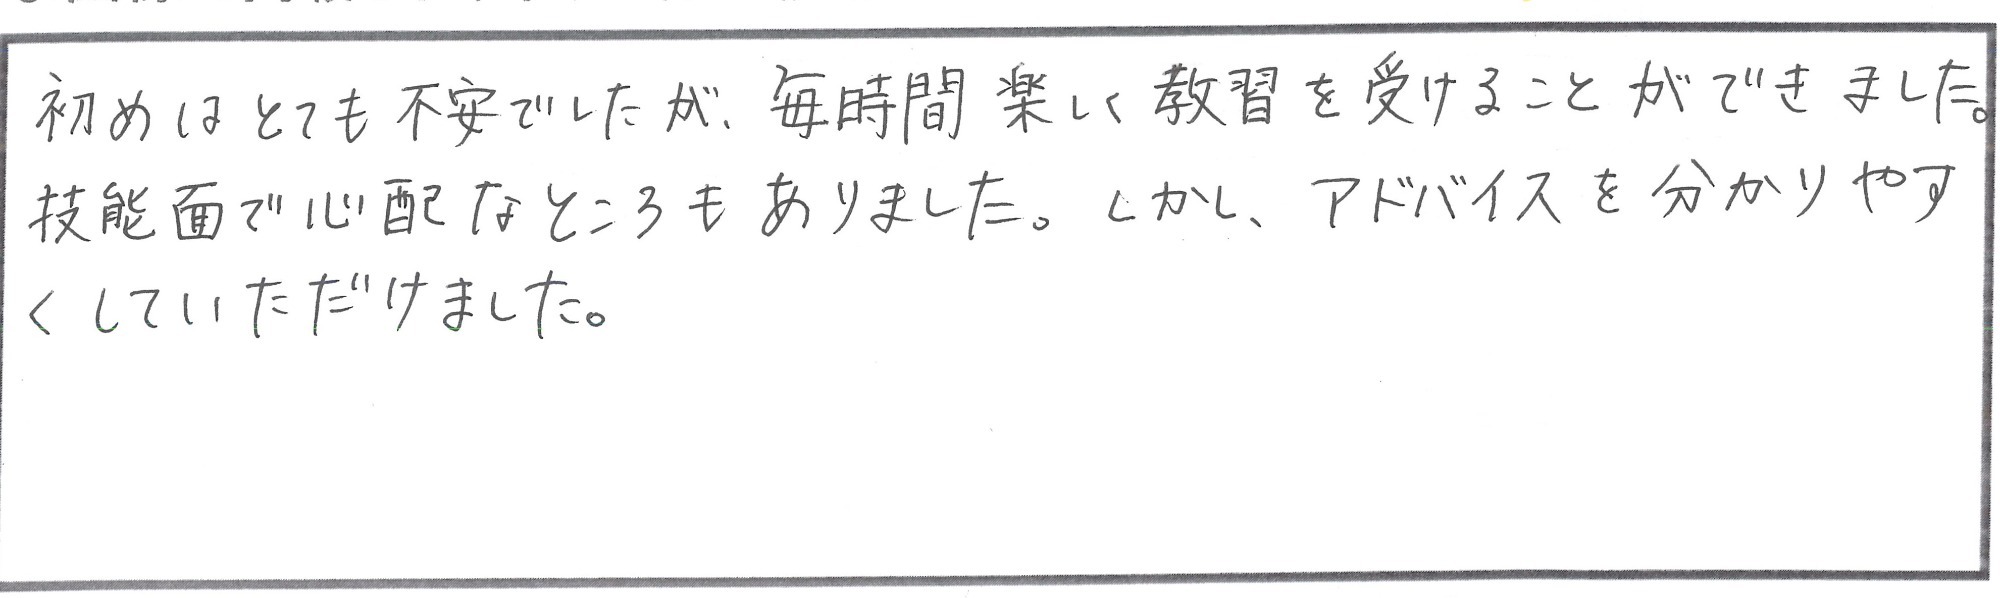 初めはとても不安でしたが、毎時間楽しく教習を受けることができました。
技能面で心配なところもありました。しかし、アドバイスを分かりやす
くしていただけました。